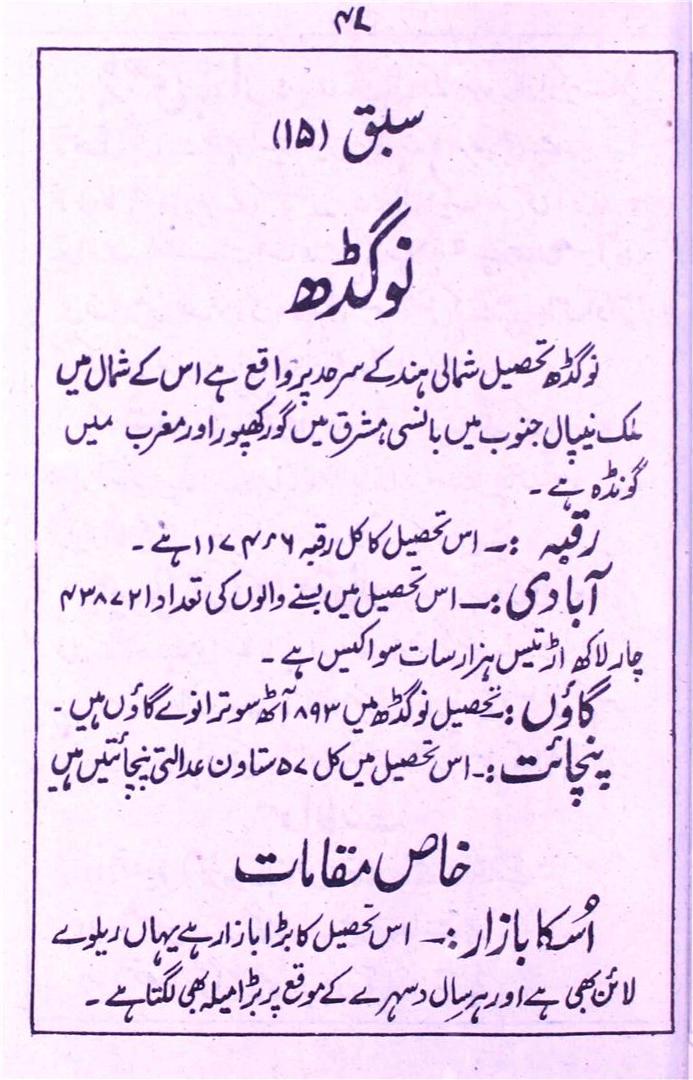 ۴۷
سبق (۱۵)
نوگڈھ
نوگڈھ تحصیل شمالی ہند کے سرحد پر واقع ہے اس کے شمال میں
ملک نیپال جنوب میں بانسی مشرق میں گورکھپور اور مغرب میں
گونڈہ ہے ۔
رقبہ :۔ اس تحصیل کا کل رقبہ ۱۱۷۴۲۶ ہے ۔
آبادی :۔ اس تحصیل میں بسنے والوں کی تعداد ۴۳۸۷۲۱
چار لاکھ اڑتیس ہزار سات سو اکیس ہے ۔
گاؤں :۔ تحصیل نوگڈھ میں ۸۹۳ آٹھ سو ترانوے گاؤں ہیں ۔
پنچائت :۔ اس تحصیل میں کل ۵۷ ستاون عدالتی پنچائتیں ہیں
خاص مقامات
اُسکا بازار :۔ اس تحصیل کا بڑا بازار ہے یہاں ریلوے
لائن بھی ہے اور ہر سال دسہرے کے موقع پر بڑا میلہ بھی لگتا ہے ۔